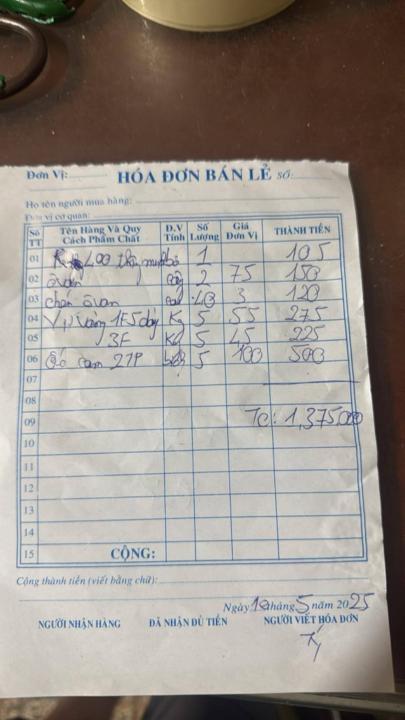 Đơn Vị: HÓA ĐƠN BÁN LẺ Số:
Họ tên người mua hàng:
Đơn vị cơ quan:
Số TT Tên Hàng Và Quy Cách Phẩm Chất Đ.V Tính Số Lượng Giá Đơn Vị THÀNH TIỀN
01 bộ 1 105
02 2 75 150
03 40 3 120
04 1F5 Kg 5 55 275
05 3F Kg 5 45 225
06 cam 27P 5 100 500
07
08
09 TC: 1,375,000
10
11
12
13
14
15 CỘNG:
Cộng thành tiền (viết bằng chữ):
Ngày tháng 5 năm 2025
NGƯỜI NHẬN HÀNG ĐÃ NHẬN ĐỦ TIỀN NGƯỜI VIẾT HÓA ĐƠN